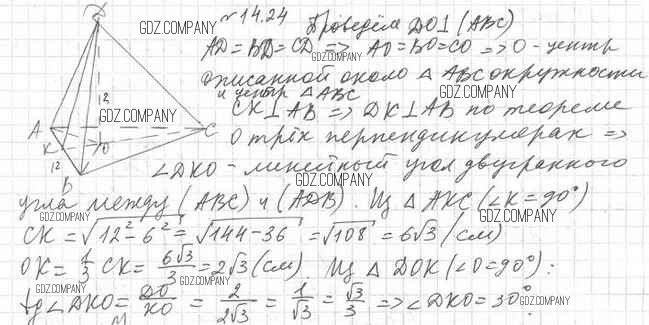 № 14.24 Проведём DO⊥(ABC)
AD=BD=CD => AO=BO=CO => O - центр
описанной около △ ABC окружности
и центр △ABC
CK⊥AB => DK⊥AB по теореме
о трёх перпендикулярах =>
∠DKO - линейный угол двугранного
угла между (ABC) и (ADB). Из △ AKC (∠K=90°)
CK = √12²-6² = √144-36 = √108 = 6√3 (см)
OK = 1/3 CK = 6√3/3 = 2√3 (см). Из △ DOK (∠O=90°):
tg∠DKO = DO/KO = 2/2√3 = 1/√3 = √3/3 => ∠DKO = 30°
D
2
A
C
K
O
12
B
GDZ.COMPANY
GDZ.COMPANY
GDZ.COMPANY
GDZ.COMPANY
GDZ.COMPANY
GDZ.COMPANY
GDZ.COMPANY
GDZ.COMPANY
GDZ.COMPANY
GDZ.COMPANY
GDZ.COMPANY
GDZ.COMPANY